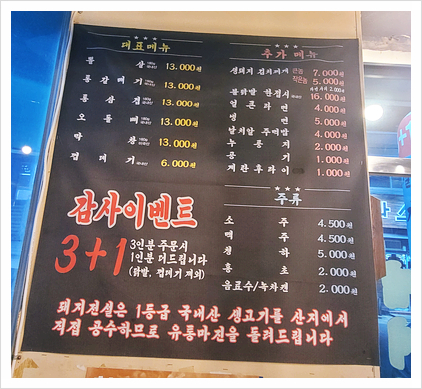 대표메뉴
통 삼 180g 국내산 13.000원
통갈매기 180g 국내산 13.000원
통삼겹 180g 국내산 13.000원
오돌뼈 180g 국내산 13.000원
막 창 13.000원
껍데기 국내산 6.000원
추가 메뉴
생돼지 김치찌개 큰놈 7.000원
작은놈 5.000원
2.000원
불닭발 한접시 국내산 16.000원
얼큰라면 4.000원
냉면 5.000원
날치알 주먹밥 4.000원
누룽지 2.000원
공기 1.000원
계란후라이 1.000원
감사이벤트
3+1
3인분 주문시
1인분 더드립니다
(닭발, 껍데기 제외)
주류
소 주 4.500원
맥 주 4.500원
청 하 5.000원
홍 초 2.000원
음료수/녹차캔 2.000원
돼지전설은 1등급 국내산 생고기를 산지에서
직접 공수하므로 유통마진을 돌려드립니다